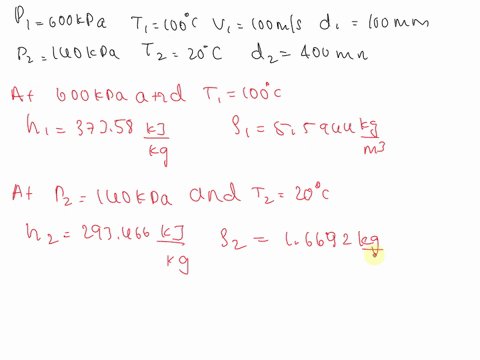 P₁ = 600kPa T₁ = 100°C V₁ = 100m/s d₁ = 100mm
P₂ = 140kPa T₂ = 20°C d₂ = 400mm
At 600kPa and T₁ = 100°C
h₁ = 373.58 kJ/kg ρ₁ = 5.5944 kg/m³
At P₂ = 140kPa and T₂ = 20°C
h₂ = 293.466 kJ/kg ρ₂ = 1.6692 kg